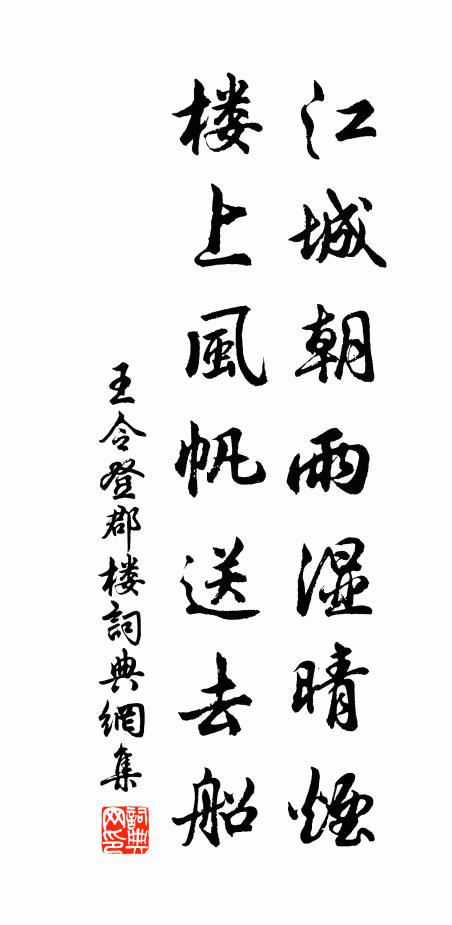 江城朝雨湿晴煙
楼上風帆送去船
王令登郡楼詞典網集
詞典网印